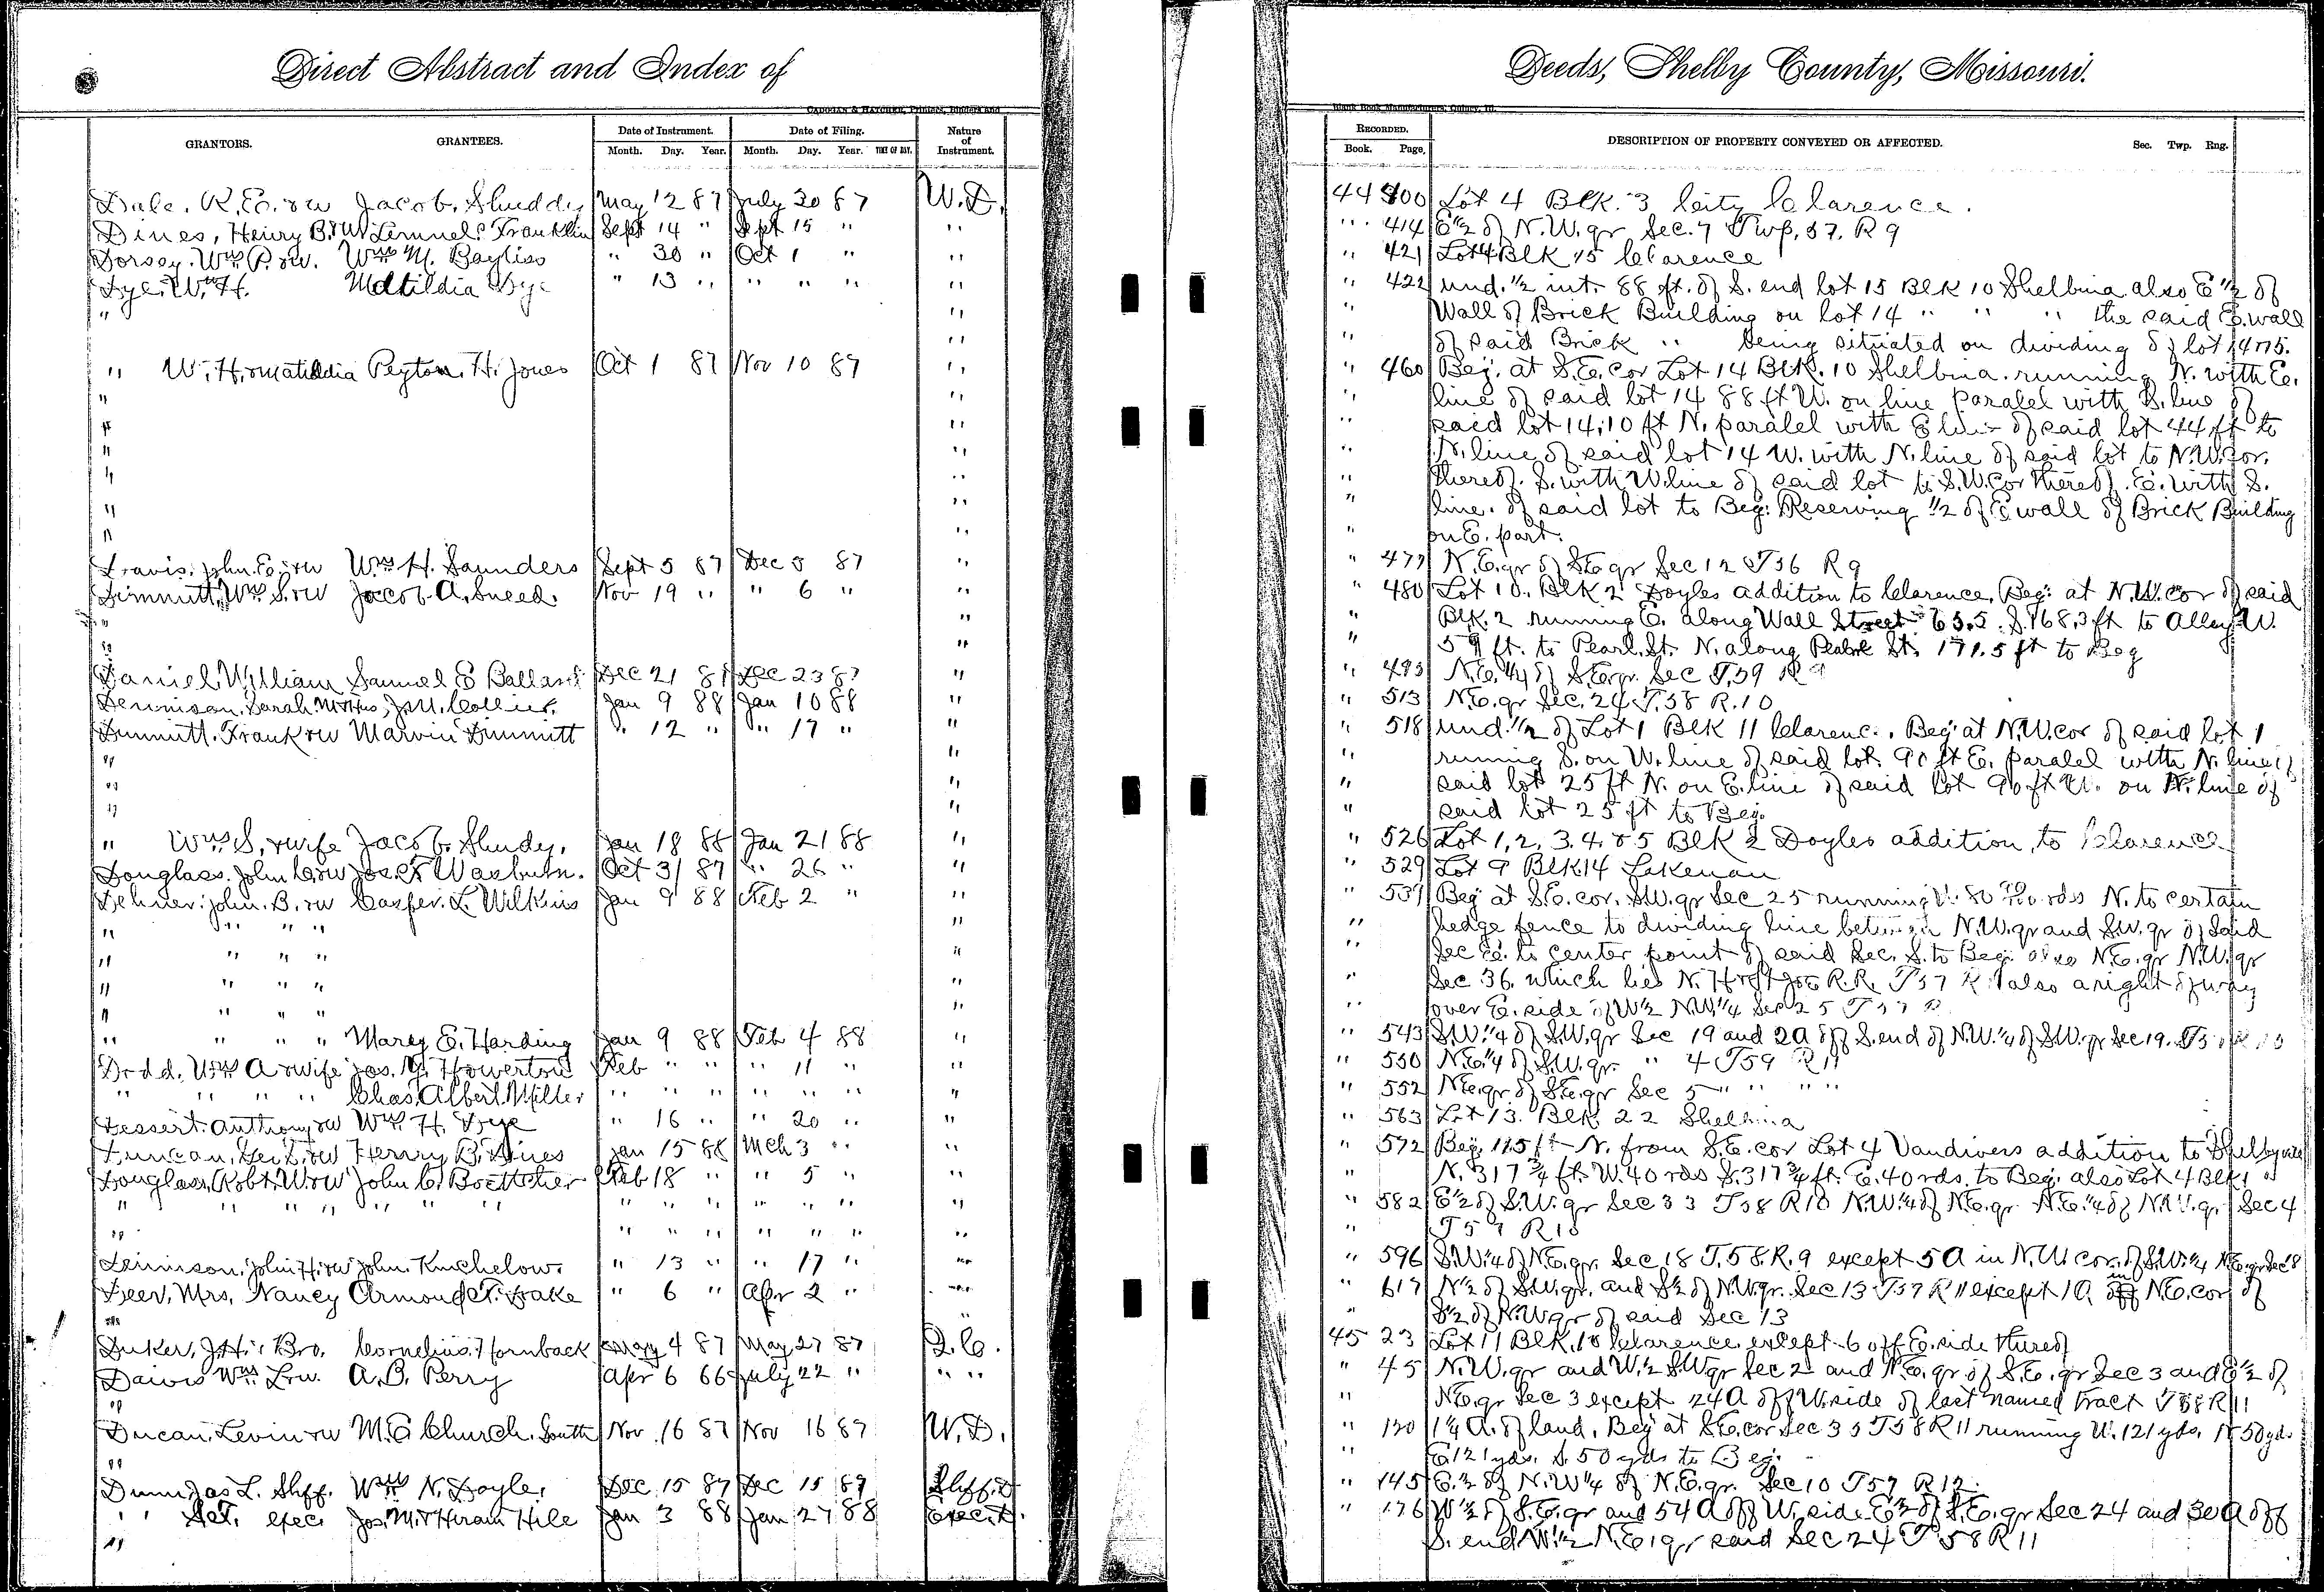 Direct Abstract and Index of
Deeds, Shelby County, Missouri.
CADOGAN & HATCHER, Printers, Binders and
Blank Book Manufacturers, Quincy, Ill.
GRANTORS. GRANTEES. Date of Instrument. Date of Filing. Nature of Instrument.
Month. Day. Year. Month. Day. Year. TIME OF DAY.
RECORDED. DESCRIPTION OF PROPERTY CONVEYED OR AFFECTED. Sec. Twp. Rng.
Book. Page.
Dale, R. E. & w Jacob Shuddy May 12 87 July 20 87 W. D. 44 400 Lot 4 Blk. 3 City Clarence.
Dines, Henry B. & W Lemuel Franklin Sept 14 " Sept 15 " " " 414 E 1/2 of N.W. qr Sec. 7 Twp. 57. R 9
Dorsey, Wm P. & w. Wm M. Bayliss " 30 " Oct 1 " " " 421 Lot 4 Blk 15 Clarence
Dye, Wm H. Matildia Dye " 13 " " " " " " 422 und. 1/2 int. 88 ft. of S. end lot 15 Blk 10 Shelbina also E 1/2 of
" " " Wall of Brick Building on lot 14 " " " the said E. wall
" " of said Brick " being situated on dividing of lot 14 & 15.
" W. H. & Matildia Peyton H. Jones Oct 1 87 Nov 10 87 " " 460 Beg. at S.E. cor Lot 14 Blk. 10 Shelbina. running N. with E.
" " " line of said lot 14 88 ft W. on line paralel with S. line of
" " " said lot 14, 10 ft N. paralel with E line of said lot 44 ft to
" " " N. line of said lot 14 W. with N. line of said lot to N.W. cor.
" " " thereof. S. with W. line of said lot to S.W. cor thereof. E. with S.
" " " line. of said lot to Beg. Reserving 1/2 of E wall of Brick Building
" " " on E. part.
Davis, John E. & w Wm H. Saunders Sept 5 87 Dec 5 87 " " 477 N.E. qr of S.E. qr Sec 12 T 56 R 9
Dimmitt, Wm S. & w Jacob A. Sneed. Nov 19 " " 6 " " " 480 Lot 10. Blk 2 Doyles addition to Clarence, Beg. at N.W. cor of said
" " " Blk. 2 running E. along Wall Street 65.5 S. 168.3 ft to Alley W.
" " " 59 ft. to Pearl St. N. along Pearl St. 171.5 ft to Beg
Daniel, William Samuel E Ballard Dec 21 87 Dec 23 87 " " 493 N.E. 1/4 of S.E. qr. Sec T.59 R 9
Dennison, Sarah M & Hus, J. M. Collier. Jan 9 88 Jan 10 88 " " 513 N.E. qr Sec. 24 T.58 R.10
Dimmitt. Frank & w Marvin Dimmitt " 12 " " 17 " " " 518 und. 1/2 of Lot 1 Blk 11 Clarence. Beg. at N.W. cor of said lot 1
" " " running S. on W. line of said lot. 90 ft E. paralel with N. line of
" " " said lot 25 ft N. on E. line of said lot 90 ft W. on N. line of
" " " said lot 25 ft to Beg.
" Wm S, & wife Jacob Shudy. Jan 18 88 Jan 21 88 " " 526 Lot 1, 2, 3. 4. & 5 Blk 2 Doyles addition, to Clarence
Douglass. John C. & w Washburn. Oct 31 87 " 26 " " " 529 Lot 9 Blk. 14 Lakenan
Dehner. John. B. & w Casper. L. Wilkins Jan 9 88 Feb 2 " " " 537 Beg at S.E. cor. S.W. qr Sec 25 running W. 80 rds N. to certain
" " " " " " hedge fence to dividing line between N.W. qr and S.W. qr of Said
" " " " " " Sec E. to center point of said Sec. S. to Beg. also N.E. qr N.W. qr
" " " " " " Sec 36. which lies N. H & St Joe R.R. T 57 R also a right of way
" " " " " " over E. side of W 1/2 N.W. 1/4 Sec 25 T 57 R
" " " " Marey E. Harding Jan 9 88 Feb 4 88 " " 543 S.W. 1/4 of S.W. qr Sec 19 and 2 A off S. end of N.W. 1/4 of S.W. qr Sec 19.
Dodd. Wm A & wife Jas. Howerton Feb " " " 11 " " " 550 N.E. 1/4 of S.W. qr. " 4 T 59 R 11
" " " " Chas. Albert Miller " " " " " " " " 552 N.E. qr of S.E. qr Sec 5 " " " "
Dessert. Anthony & w Wm H. Dye " 16 " " 20 " " " 563 Lot 13. Blk 22 Shelbina
Duncan, & w Henry B. Dines Jan 15 88 Mch 3 " " " 572 Beg. 115 ft N. from S.E. cor Lot 4 Vandivers addition to Shelbyville
Douglass, Robt. W & w John C. Boettcher Feb 18 " " 5 " " " N. 317 3/4 ft. W. 40 rds S. 317 3/4 ft. E. 40 rds. to Beg. also Lot 4 Blk 1
" " " " " " " " " " " " " " " 582 E 1/2 of S.W. qr Sec 33 T 58 R 10 N.W. 1/4 of N.E. qr N.E. 1/4 of N.W. qr Sec 4
" " " " " " " " " T 57 R 10
Dennison, John H. & w John Kinchelow. " 13 " " 17 " " " 596 S.W. 1/4 of N.E. qr. Sec 18 T. 58 R. 9 except 5 A in N.W. cor. of S.W. 1/4 N.E. qr Sec 18
Deer, Mrs. Nancy Armond T. Drake " 6 " Apr 2 " " " 617 N 1/2 of S.W. qr. and S 1/2 of N.W. qr. Sec 13 T 57 R 11 except 1 A. in N.E. cor of
" " " S 1/2 of N.W. qr of said Sec 13
Duker, J. H. & Bro. Cornelius Hornback May 4 87 May 27 87 Q. C. 45 23 Lot 11 Blk. 18 Clarence except 6 off E. side thereof
Daivis Wm L. & w. A. B. Perry Apr 6 66 July 22 " " " " 45 N.W. qr and W. 1/2 S.W. qr Sec 2 and N.E. qr of S.E. qr Sec 3 and E 1/2 of
" " N.E. qr Sec 3 except 24 A off W. side of last named tract T 58 R 11
Ducan, Levin & w M. E Church, South Nov 16 87 Nov 16 87 W. D. " 120 1 1/4 A. of land, Beg at S.E. cor Sec 35 T 58 R 11 running W. 121 yds. N 50 yds.
" " E 121 yds. S. 50 yds to Beg.
Dunn, Jas L. Shff. Wm N. Doyle, Dec 15 87 Dec 15 87 Shff. D " 145 E. 1/2 of N.W 1/4 of N.E. qr. Sec 10 T 57 R 12.
" exec. Jos. M. & Hiram Hile Jan 3 88 Jan 27 88 Exec. D. " 176 W 1/2 of S.E. qr and 54 A off W. side E 1/2 of S.E. qr Sec 24 and 30 A off
" S. end W. 1/2 N.E. qr said Sec 24 T 58 R 11